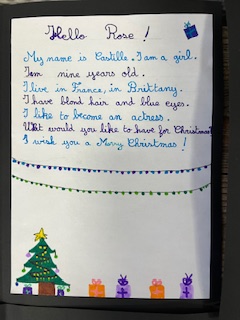 Hello Rose !
My name is Castille. I am a girl.
I am nine years old.
I live in France, in Brittany.
I have blond hair and blue eyes.
I like to become an actress.
What would you like to have for Christmas?
I wish you a Merry Christmas !